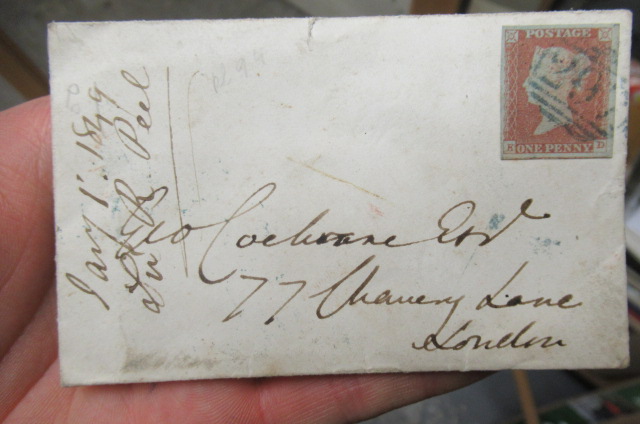 POSTAGE
ONE PENNY
Jany 1st 1849
Sir R. Peel
Geo Cochrane Esqr
77 Chancery Lane
London